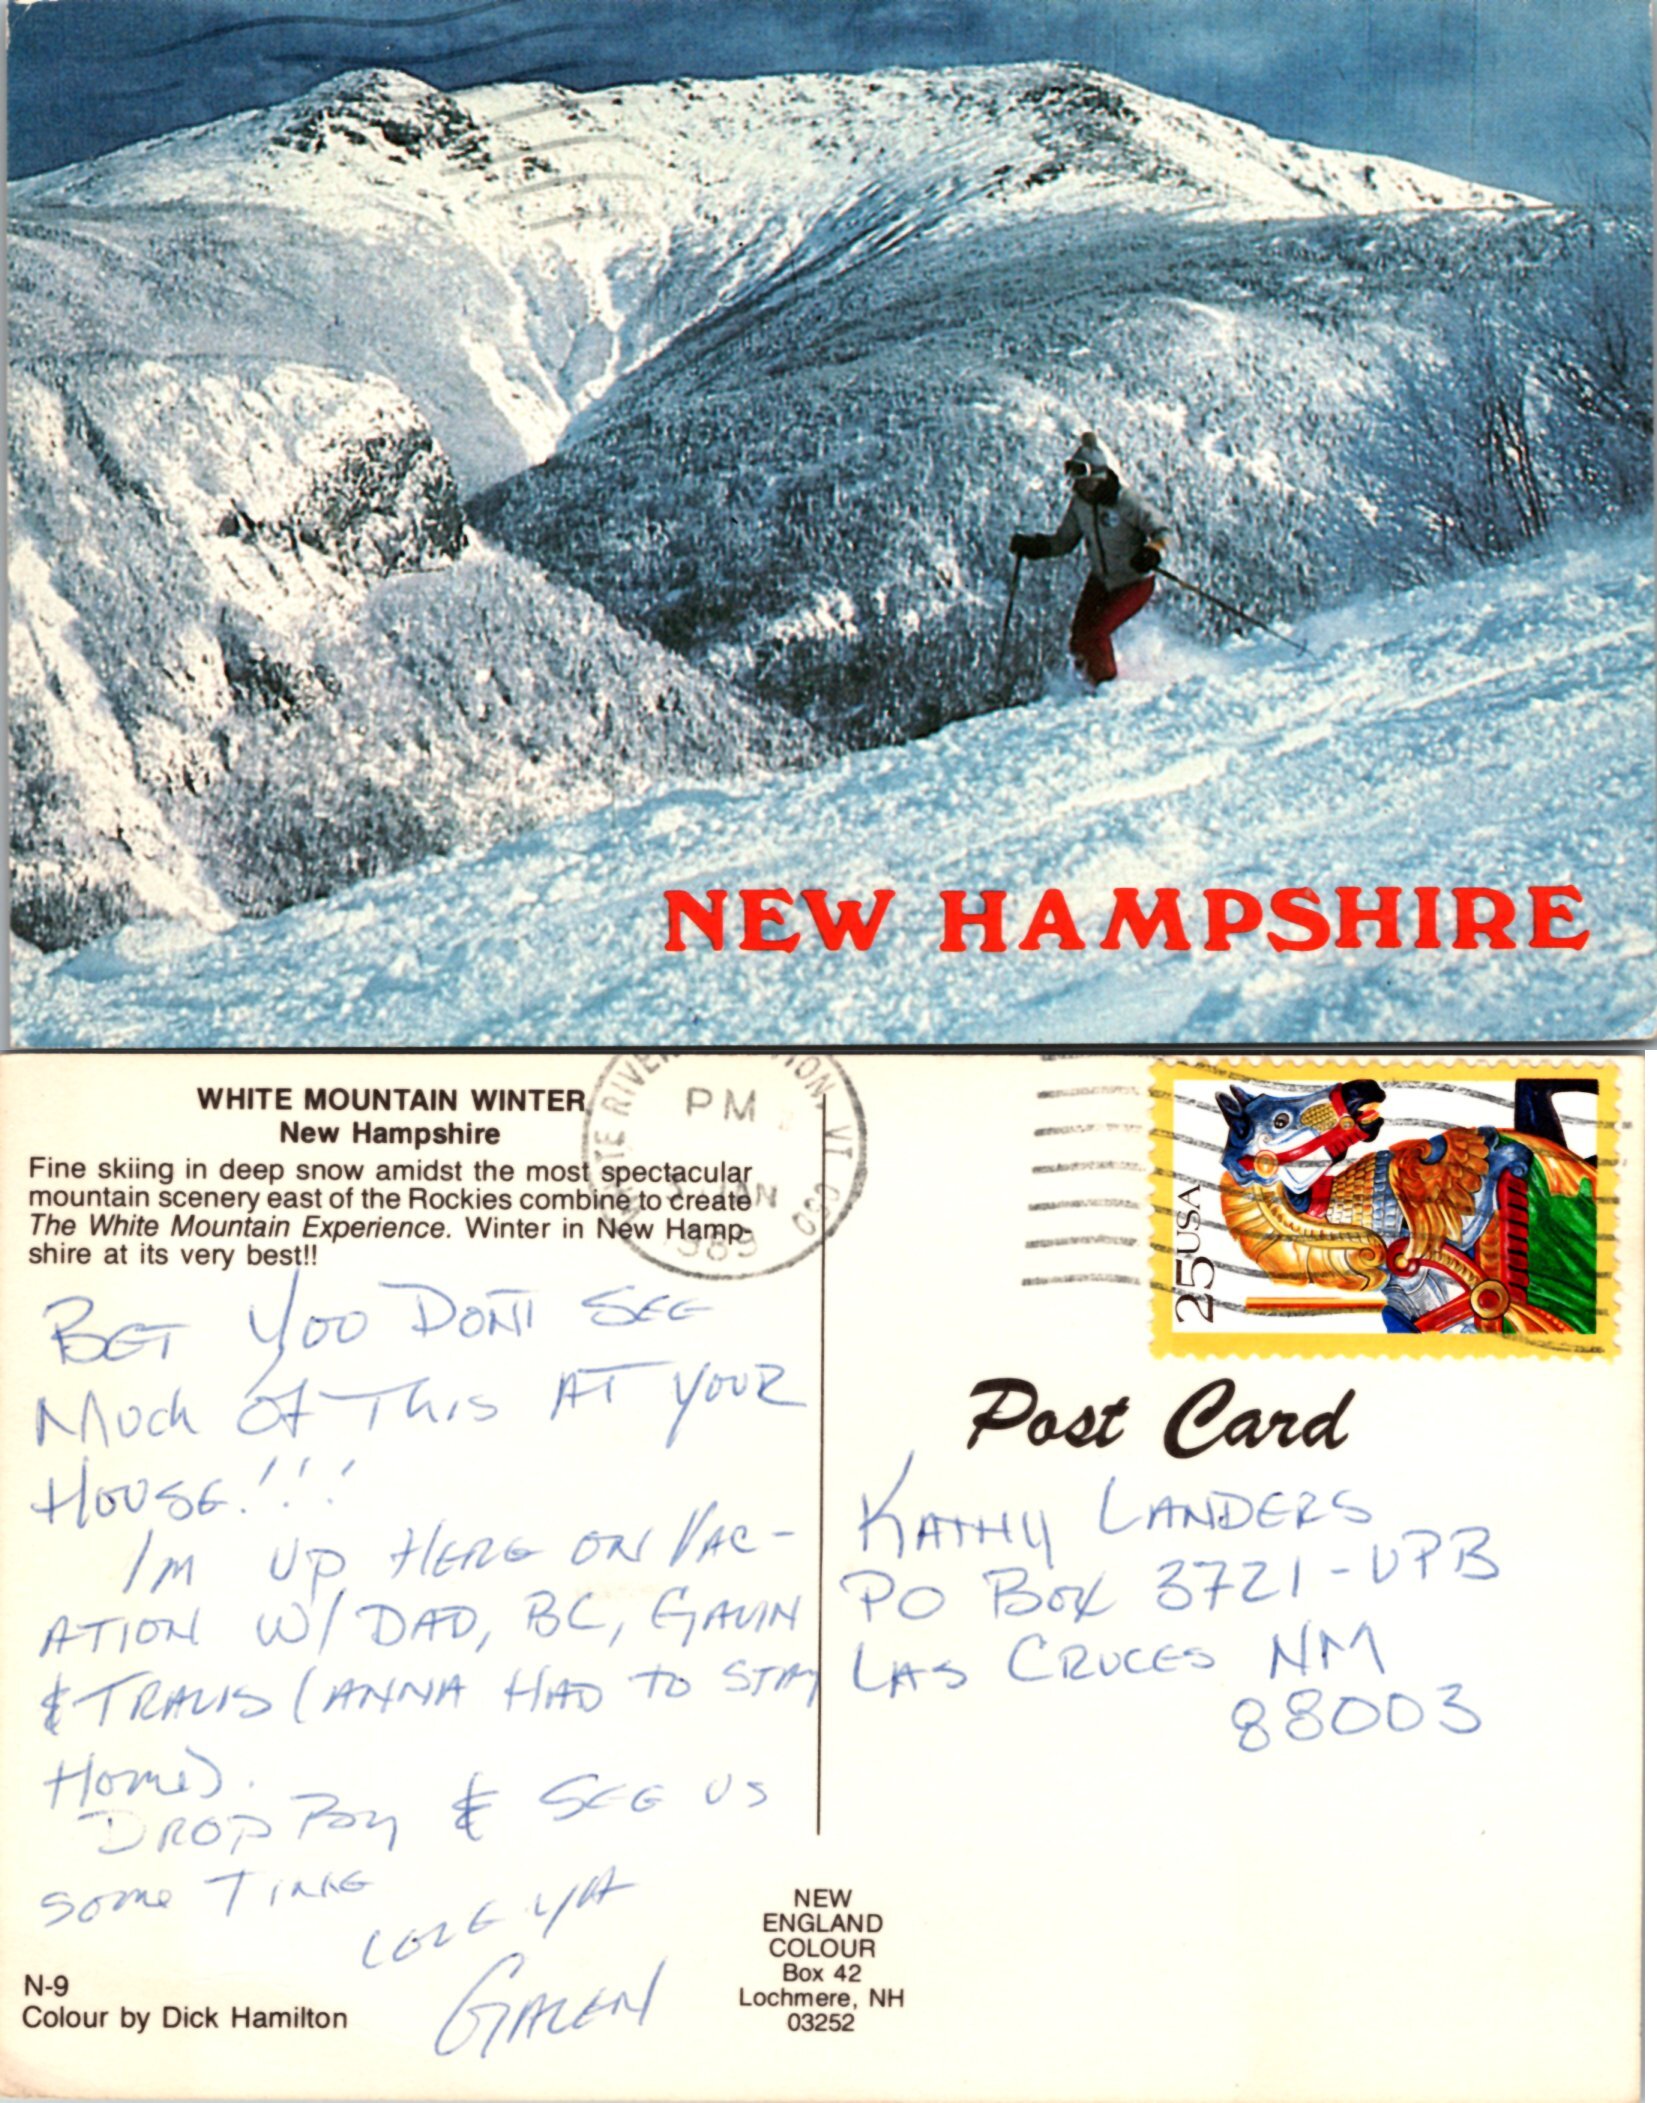 NEW HAMPSHIRE
WHITE MOUNTAIN WINTER
New Hampshire
Fine skiing in deep snow amidst the most spectacular
mountain scenery east of the Rockies combine to create
The White Mountain Experience. Winter in New Hamp-
shire at its very best!!
PM
JAN
1989
VT
25USA
BET YOU DONT SEE
MUCH OF THIS AT YOUR
HOUSE!!!
I'M UP HERE ON VAC-
ATION W/ DAD, BC, GAVIN
& TRAVIS (ANNA HAD TO STAY
HOME).
DROP BY & SEE US
SOME TIME
LOVE YA
GALEN
Post Card
KATHY LANDERS
PO BOX 3721-UPB
LAS CRUCES NM
88003
N-9
Colour by Dick Hamilton
NEW
ENGLAND
COLOUR
Box 42
Lochmere, NH
03252